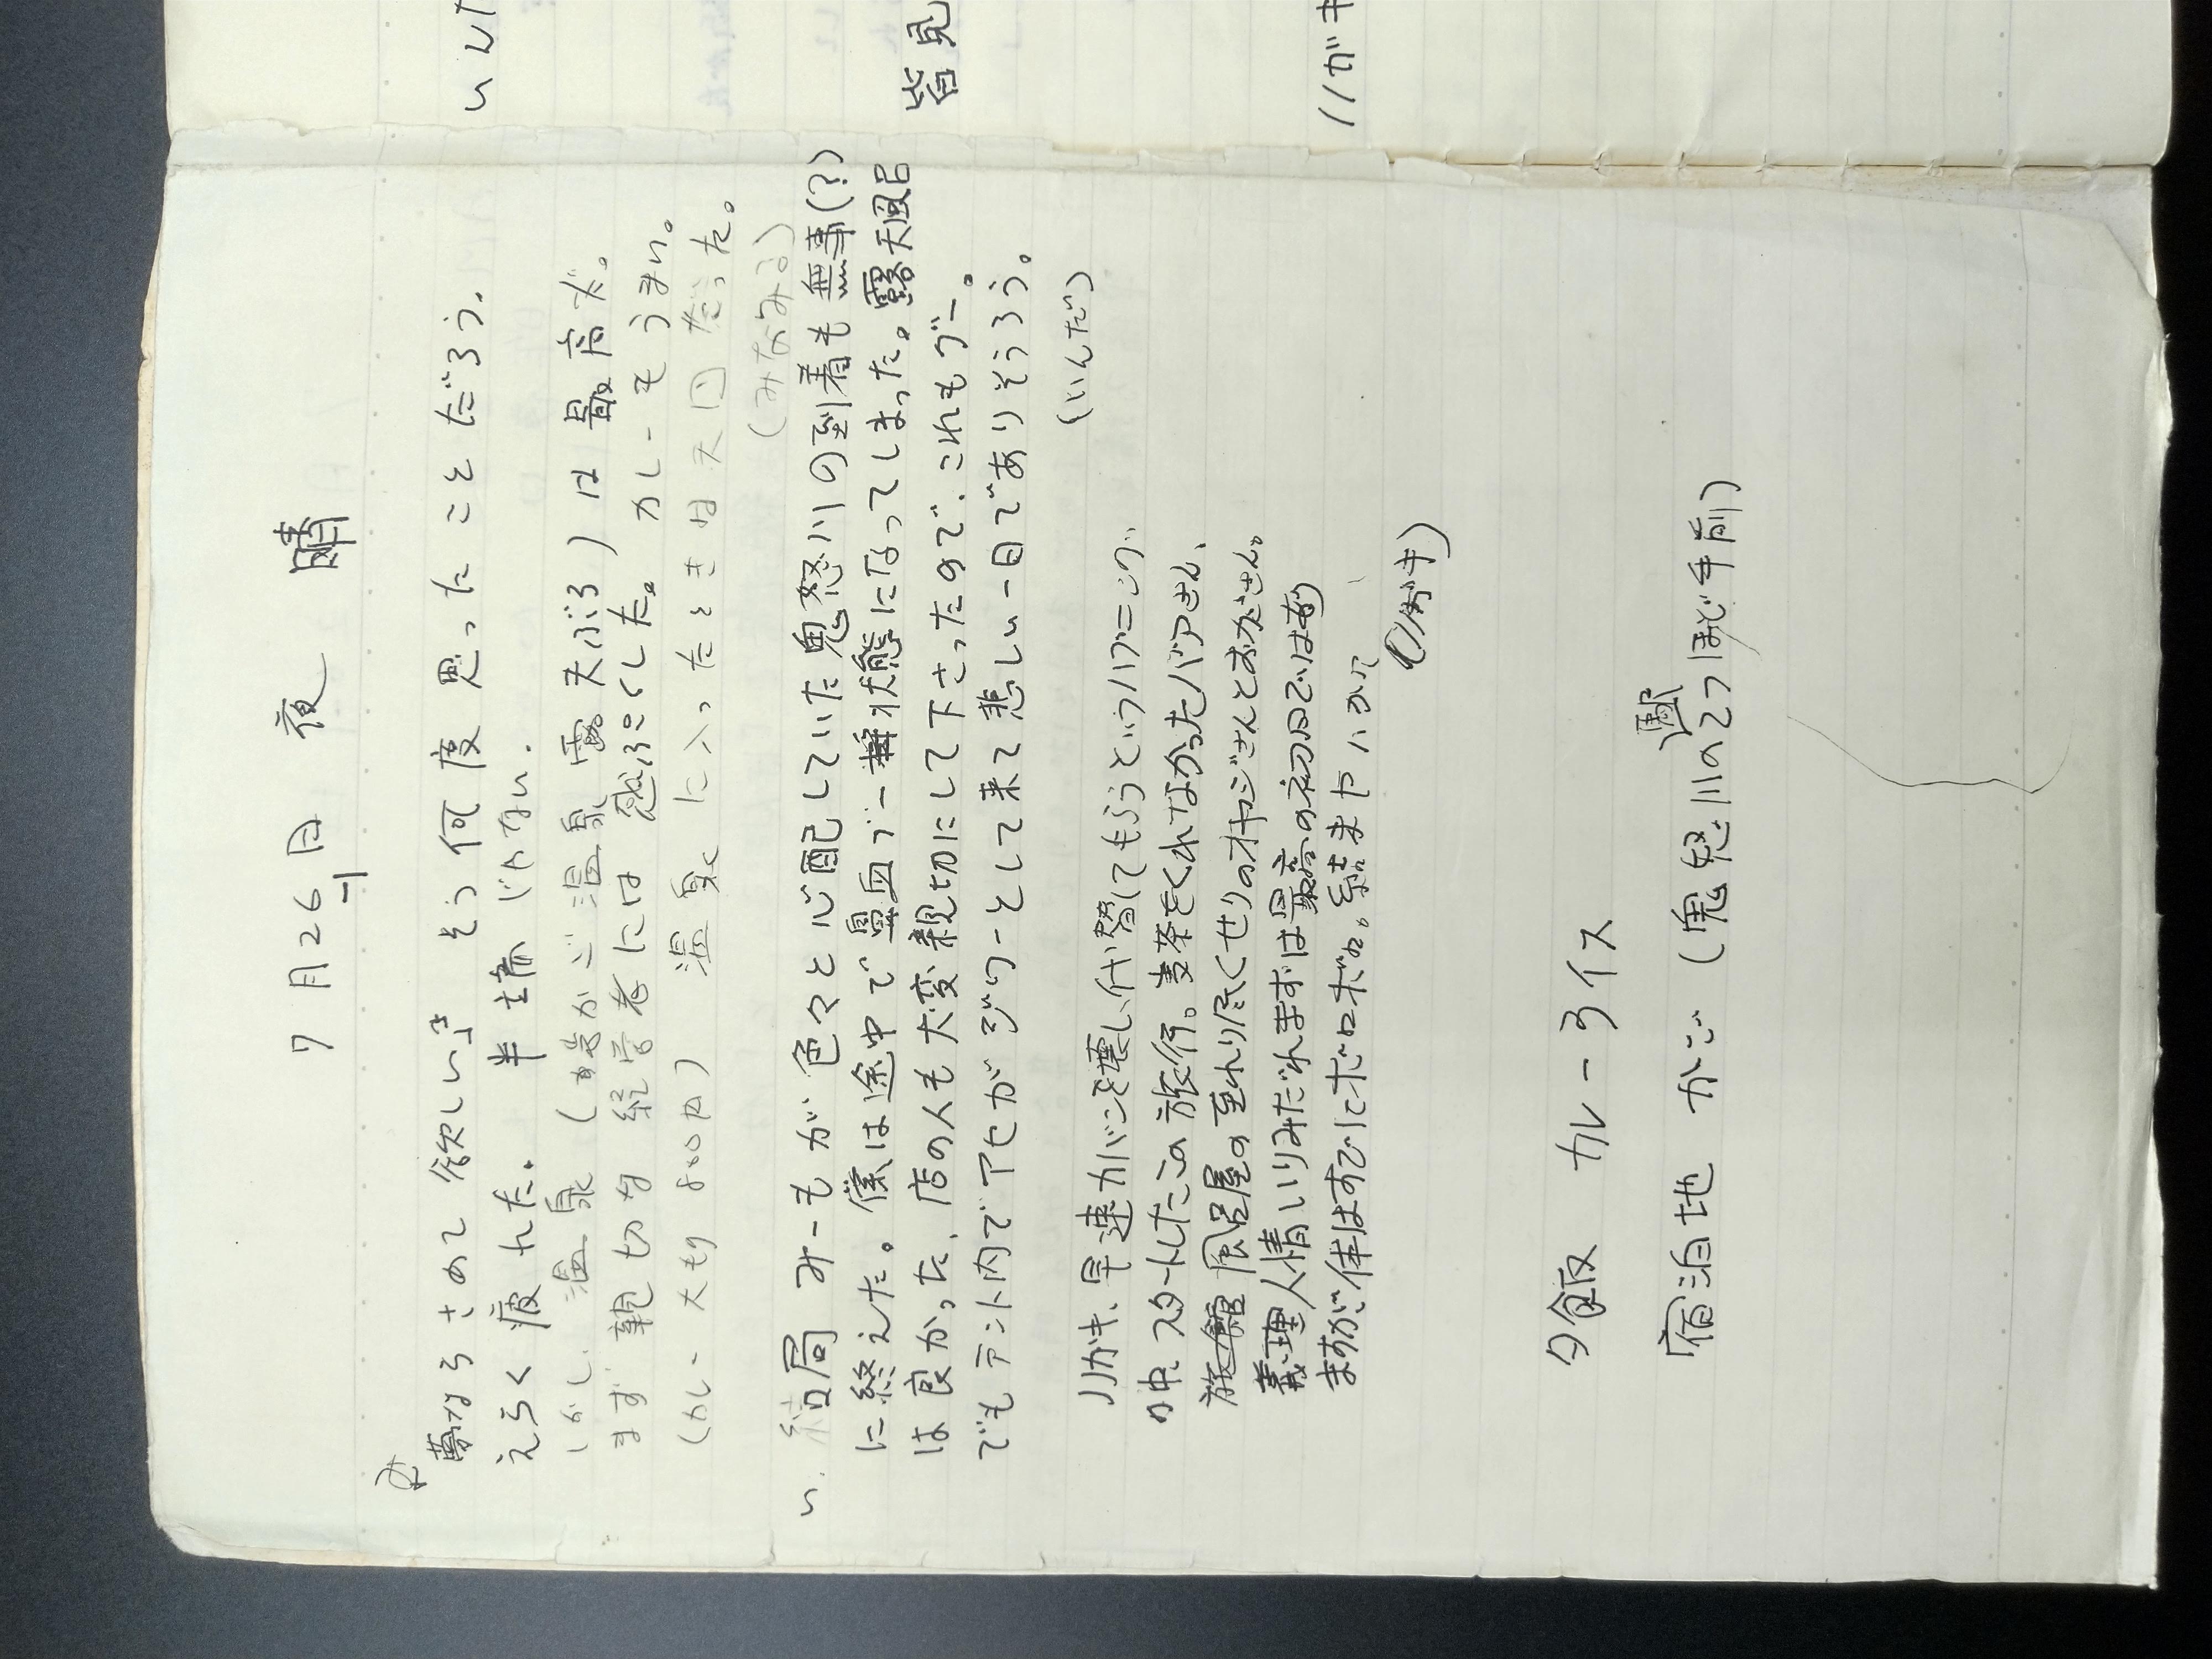 7月26日 夜 晴
夢ならさめて欲しい』そう何度思ったことだろう.
えらく疲れた. 半端じゃない.
しかし、温泉( かご温泉 露天ぶろ)は最高だ。
まず親切な経営者には感ぷくした。カレーもうまい。
(カレー大もり800円) 温泉に入ったときは天国だった。
(みなみる)
い.
結局 みーもが色々と心配していた鬼怒川の到着も無事(?)
に終えた。僕は途中で鼻血ブー 状態になってしまった。露天風呂
は良かった、店の人も大変親切にして下さったので、これもグー。
でもテント内でアセがジワーとして来て悲しい一日でありそうろう。
(いんだ)
ノリガキ、早速カバンを壊し、付け替えてもらうというハプニング
の中、スタートしたこの旅行。麦茶をくれなかったバアさん、
風呂屋の至れり尽くせりのオヤジさんとおかさん。
義理人情いりみだれまずは最高の初日では
ますが体はすでにボロボロ。結末やいかに
(ノリガキ)
夕飯 カレーライス
宿泊地 かご (鬼怒川の2つほど手前)
駅
いんた
皆見
ノリガキ